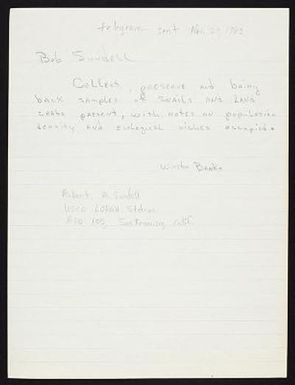 telegram sent Nov 29, 1963
Bob Sundell
Collect, preserve and bring
back samples of snails and land
crabs present, with notes on population
density and ecological niches occupied.
Winston Banko
Robert A Sundell
USCG LORAN Station
APO 105, San Francisco, Calif.